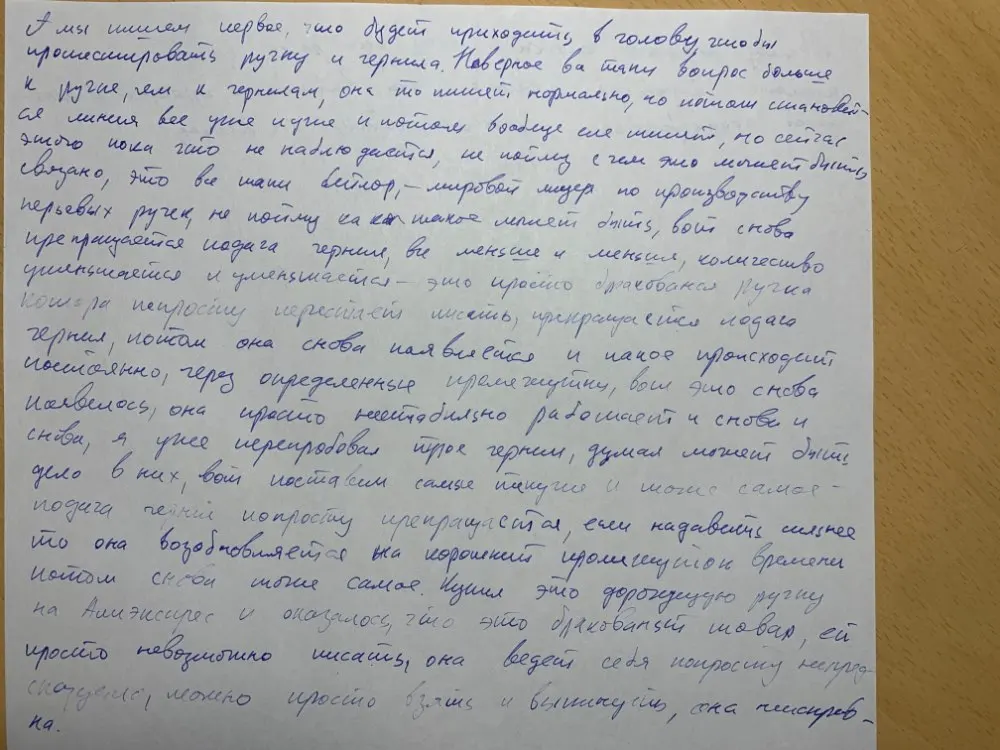 А мы пишем первое, что будет приходить в голову, чтобы
протестировать ручку и чернила. Наверное ва таки вопрос больше
к ручке, чем к чернилам, она то пишет нормально, но потом становит-
ся линия все уже и уже и потом вообще не пишет, но сейчас
этого пока что не наблюдается, не пойму с чем это может быть
связано, это все таки – мировой лидер по производству
перьевых ручек, не пойму как такое может быть, вот снова
прекращается подача чернил, все меньше и меньше, количество
уменьшается и уменьшается – это просто бракованая ручка
котора попросту перестает писать, прекращается подача
чернил, потом она снова появляется и такое происходит
постоянно, через определенные промежутки, вот это снова
появилось, она просто нестабильно работает и снова и
снова, я уже перепробовал трое чернил, думал может быть
дело в них, вот поставил самые текучие и тоже самое –
подача чернил попросту прекращается, если надавить сильнее
то она возобновляется на короткий промежуток времени
потом снова тоже самое. Купил это дорогущую ручку
на Алиэкспрес и оказалось, что это бракованый товар, ей
просто невозможно писать, она ведет себя попросту непред-
сказуемо, можно просто взять и выкинуть, она неисправ-
на.